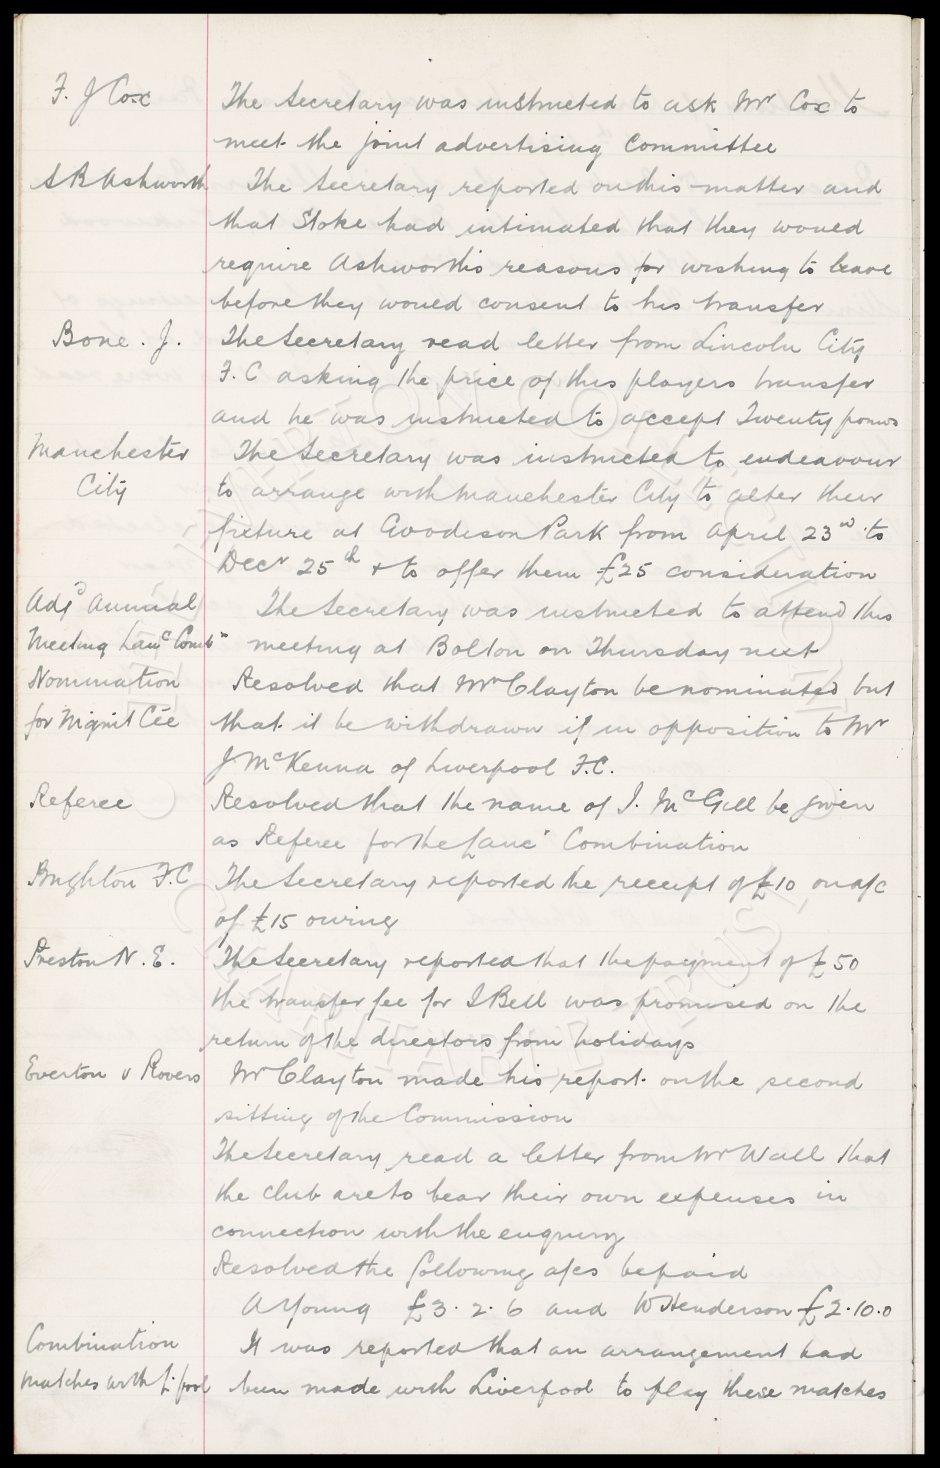 F. J Cox The Secretary was instructed to ask Mr Cox to
meet the joint advertising Committee
S B Ashworth The Secretary reported on this matter and
that Stoke had intimated that they would
require Ashworth's reasons for wishing to leave
before they would consent to his transfer
Bone. J. The Secretary read letter from Lincoln City
F. C asking the price of this players transfer
and he was instructed to accept Twenty pounds
Manchester The Secretary was instructed to endeavour
City to arrange with Manchester City to alter their
fixture at Goodison Park from April 23rd to
Decr 25th & to offer them £25 consideration
Adjd Annual The Secretary was instructed to attend this
Meeting Lanc Combn meeting at Bolton on Thursday next
Nomination Resolved that Mr Clayton be nominated but
for Mgmt Cee that it be withdrawn if in opposition to Mr
J McKenna of Liverpool F.C.
Referee Resolved that the name of J. McGill be given
as Referee for the Lanc' Combination
Brighton F.C The Secretary reported the receipt of £10 on a/c
of £15 owing
Preston N. E. The Secretary reported that the payment of £50
the transfer fee for J Bell was promised on the
return of the directors from holidays
Everton v Rovers Mr Clayton made his report on the second
sitting of the Commission
The Secretary read a letter from Mr Wall that
the club are to bear their own expenses in
connection with the enquiry
Resolved the following a/cs be paid
A Young £3. 2. 6 and W Henderson £2. 10. 0
Combination It was reported that an arrangement had
matches with L'pool been made with Liverpool to play these matches